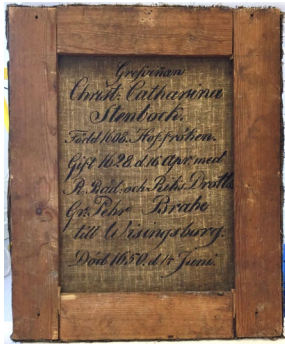 Grefvinnan
Christ. Catharina
Stenbock.
Född 1608. Hof-fröken.
Gift 1628. d. 16 Apr. med
R. Råd. och Riks Drotts.
Gr. Pehr Brahe
till Wisingsburg.
Död 1650. d. 14 Juni.